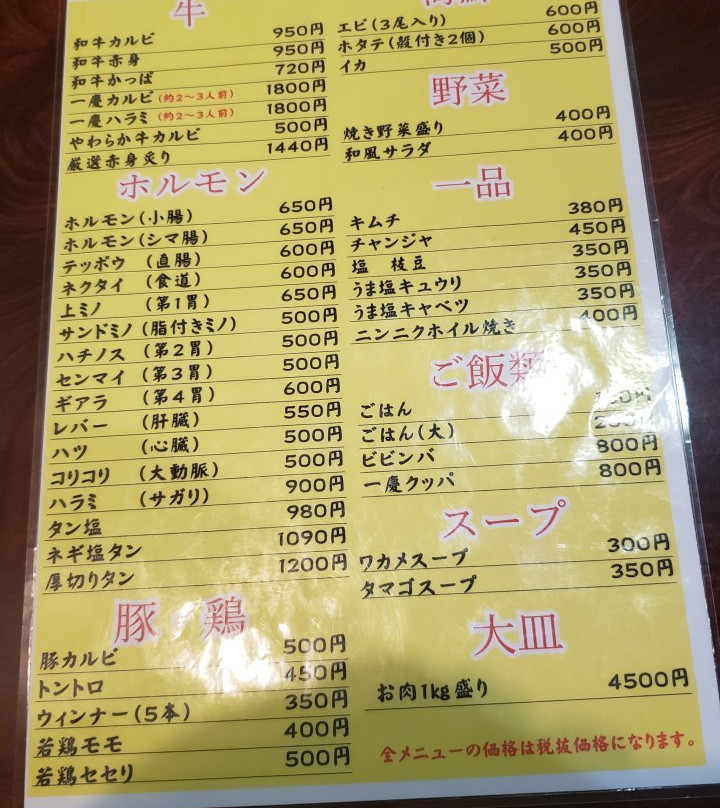 牛
和牛カルビ 950円
和牛赤身 950円
和牛かっぱ 720円
一慶カルビ(約2〜3人前) 1800円
一慶ハラミ(約2〜3人前) 1800円
やわらか牛カルビ 500円
厳選赤身炙り 1440円
ホルモン
ホルモン(小腸) 650円
ホルモン(シマ腸) 650円
テッポウ (直腸) 600円
ネクタイ (食道) 600円
上ミノ (第1胃) 650円
サンドミノ(脂付きミノ) 500円
ハチノス (第2胃) 500円
センマイ (第3胃) 500円
ギアラ (第4胃) 600円
レバー (肝臓) 550円
ハツ (心臓) 500円
コリコリ (大動脈) 500円
ハラミ (サガリ) 900円
タン塩 980円
ネギ塩タン 1090円
厚切りタン 1200円
豚・鶏
豚カルビ 500円
トントロ 450円
ウィンナー(5本) 350円
若鶏モモ 400円
若鶏セセリ 500円
エビ(3尾入り) 600円
ホタテ(殻付き2個) 600円
イカ 500円
野菜
焼き野菜盛り 400円
和風サラダ 400円
一品
キムチ 380円
チャンジャ 450円
塩 枝豆 350円
うま塩キュウリ 350円
うま塩キャベツ 350円
ニンニクホイル焼き 400円
ご飯類
ごはん
ごはん(大)
ビビンバ 800円
一慶クッパ 800円
スープ
ワカメスープ 300円
タマゴスープ 350円
大皿
お肉1kg盛り 4500円
全メニューの価格は税抜価格になります。